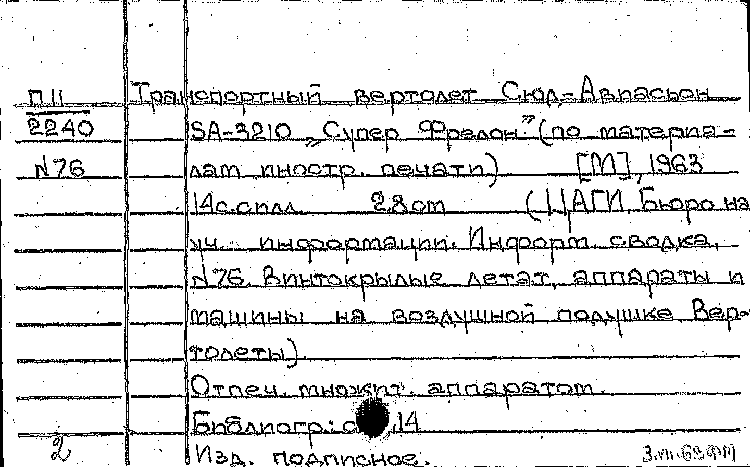 П11
2240
N76
Транспортный вертолет Сюд-Авиасьон
SA-3210 „Супер Фрелон" (по материа-
лам иностр. печати) [М], 1963
14с. с илл. 28см (ЦАГИ. Бюро на
уч. информации. Информ. сводка,
N76. Винтокрылые летат. аппараты и
машины на воздушной подушке Вер-
толеты)
Отпеч. множит. аппаратом.
Библиогр.: с. 14
Изд. подписное.
2